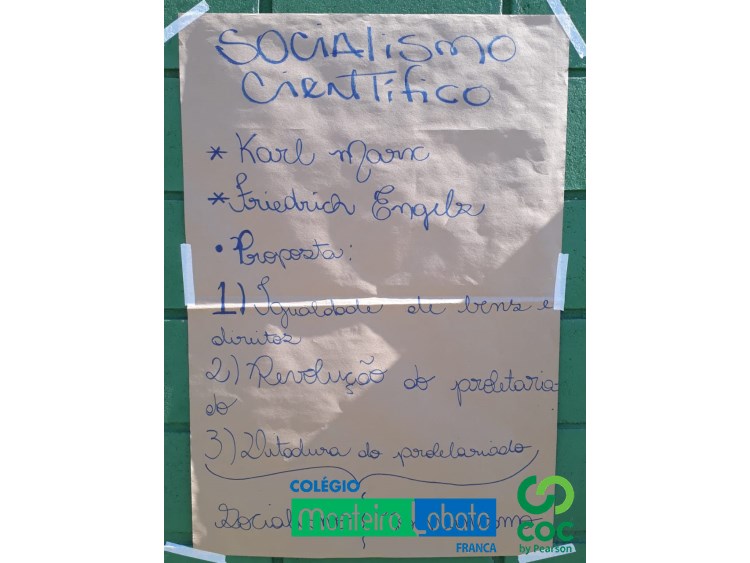 SOCIALISMO
CIENTÍFICO
* Karl Marx
* Friedrich Engels
• Proposta:
1) Igualdade de bens e
direitos
2) Revolução do proletaria
do
3) Ditadura do proletariado
COLÉGIO
Monteiro Lobato
FRANCA
Socialismo
COC
by Pearson